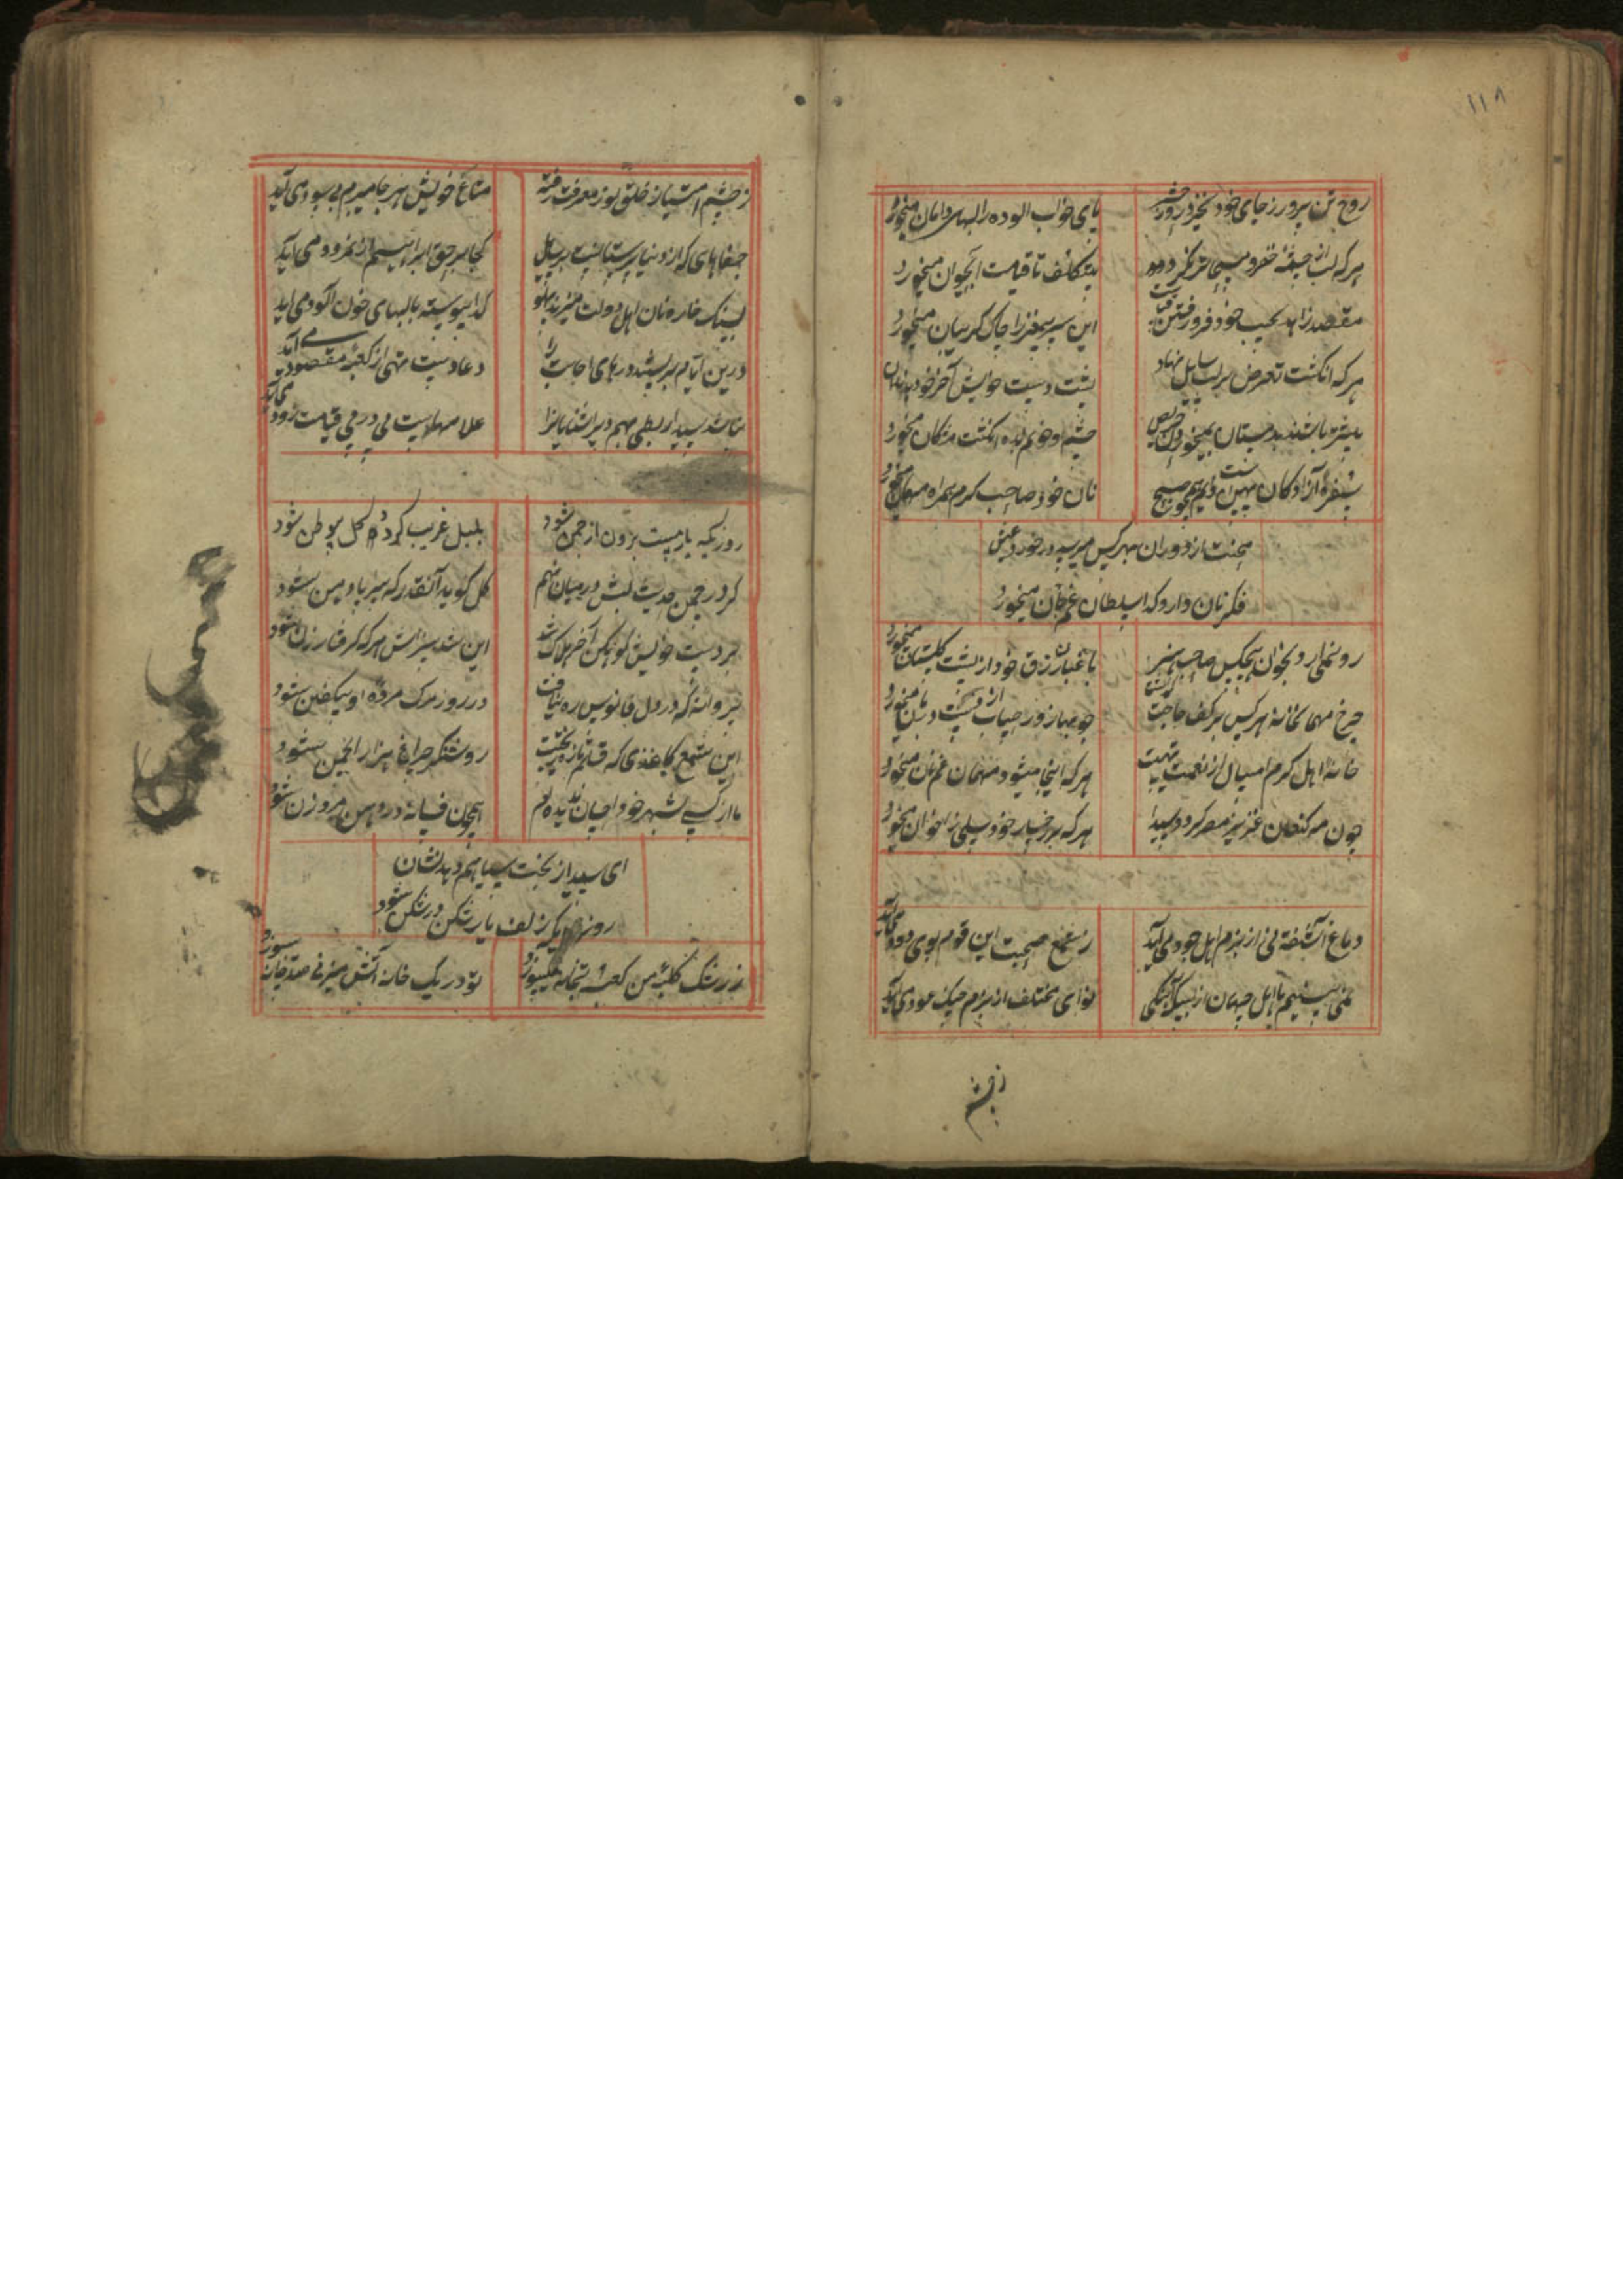 ۱۱۸
روح تن پرور ز جای خود نخیزد روز حشر
پای خواب آلوده را
هرکه لب از چشمهٔ خضر و مسیحا تر نکرد
بی تکلف تا قیامت آب حیوان میخورد
مقصد زاهد بجیب خود فرو رفتن
این سر بیمغز را چاک گریبان میخورد
هرکه انگشت تعرض بر لب سایل نهاد
پشت دست خویش آخر خود بدندان
چشم او خونم بده انگشت مژگان میخورد
سفرهٔ آزادگان دایم همچو صبح
نان خود صاحب کرم همراه مهمان میخورد
محنت از دوران بهر کس میرسد در خورد عیش
فکر نان دارد گدا سلطان غم جان میخورد
رو نمی آرد بخوان هیچکس صاحب هنر
باغبان رزق خود از پشت گلستان میخورد
چرخ مهمانخانهٔ هر کس بر کف حاجت
خانهٔ اهل کرم امسال از نعمت تهیست
هرکه اینجا میشود مهمان غم نان میخورد
چون مه کنعان عزیز مصر گردد سیدا
هرکه بر رخسار خود سیلی ز اخوان میخورد
دماغ آشفته نی از بزم اهل جود می آید
ز شمع صحبت این قوم بوی دود می آید
نمی بینیم با اهل جهان از یکدیگر
نوای مختلف از بزم چنگ عود می آید
ز چشم
ز چشم امتیاز خلق نور معرفت رفته
متاع خویش هر جا میبرم بی سود می آید
جفاهای که از دنیا پرستانست بر سایل
کجا بر حق ابراهیم از نمرود می آید
بسنگ خاره نان اهل دولت میزند پهلو
گدا پیوسته با لبهای خون آلود می آید
درین ایام بربستند درهای اجابت را
دعا دست تهی از کعبهٔ مقصود می آید
علامتهاست پی در پی قیامت زود می آید
روزیکه یار مست برون از چمن شود
بلبل غریب گردد و گل بی وطن شود
گر در چمن حدیث لبش در میان نهم
گل گوید آنقدر که سراپا دهن شود
بر دست خویش کوهکن آخر هلاک شد
این شد سزایش هرکه گرفتار زن شود
پروانهٔ که در دل فانوس ره نیافت
در روز مرگ مردهٔ او بیکفن شود
این شمع کاغذی که قلم تازه
روشنگر چراغ هزار انجمن شود
ما از کسی بشهر خود احسان ندیده ایم
ای سیدا ز بخت سیاهم دهد نشان
روزی که زلف یار شکن در شکن شود
ز رشک کلبهٔ من کعبه و بتخانه میسوزد
تو در یک خانه آتش میزنی صد خانه میسوزد